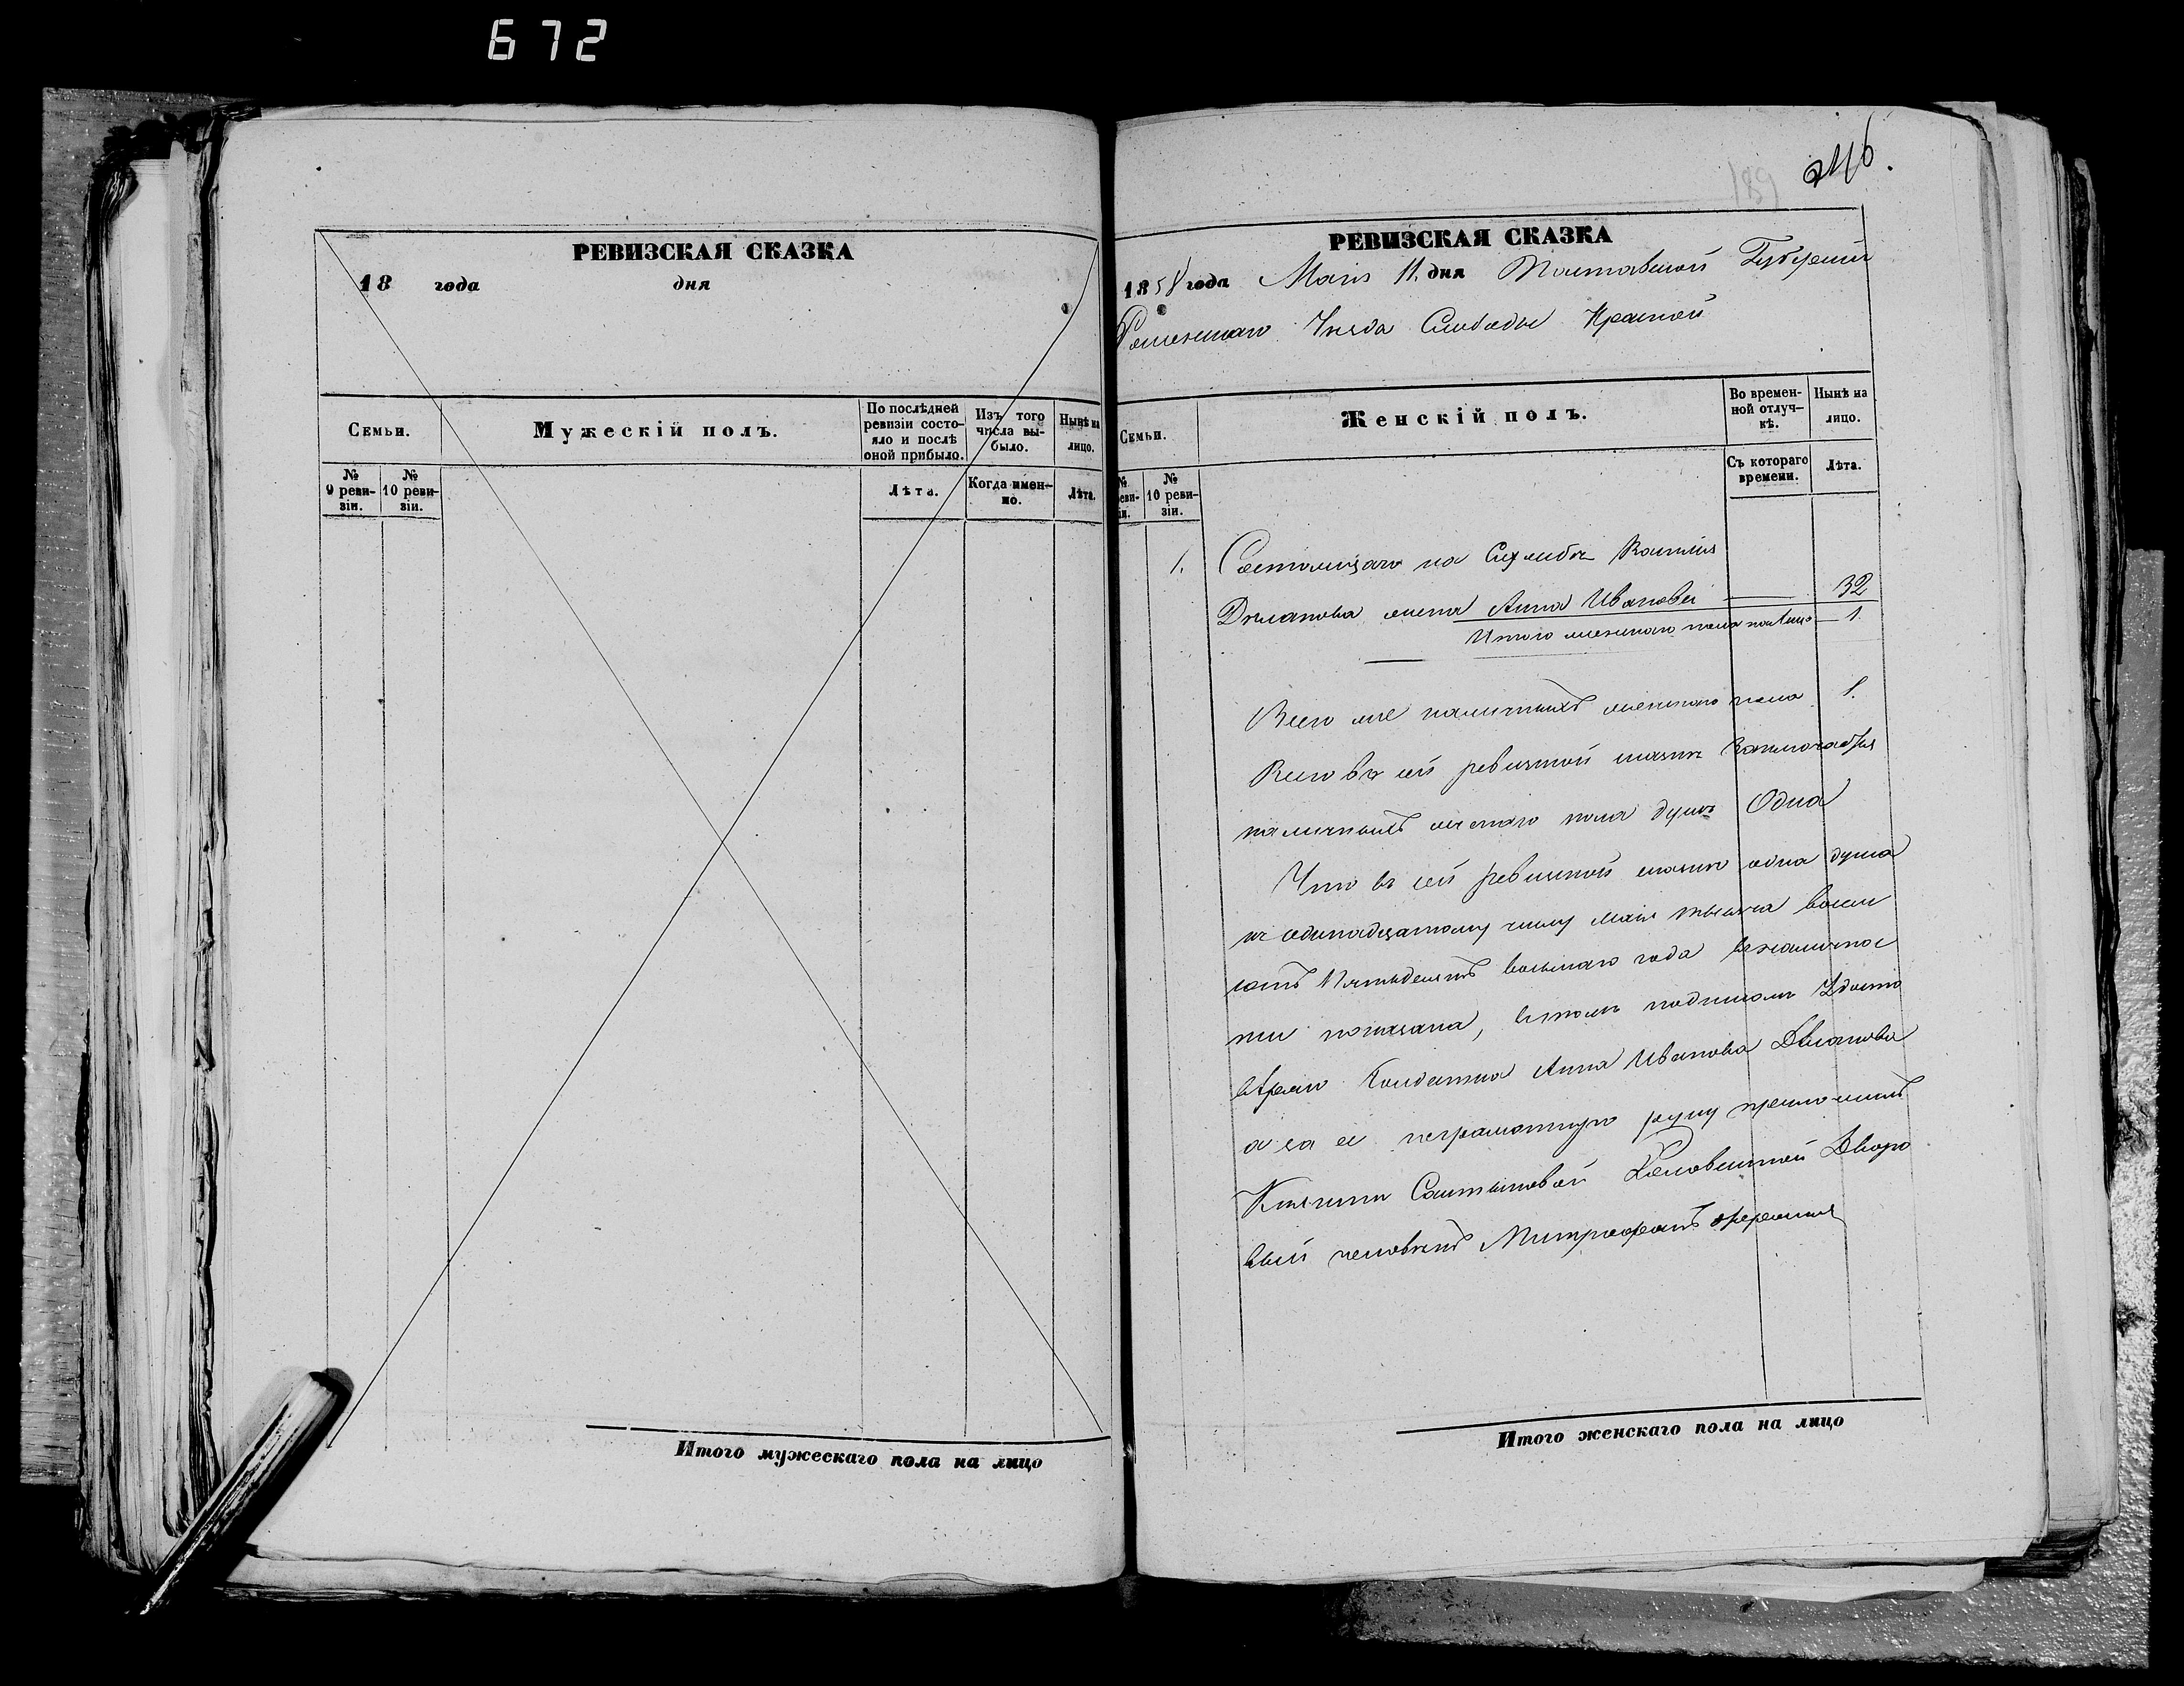 672
РЕВИЗСКАЯ СКАЗКА
18 года дня
Семьи.
Мужескій полъ.
По послѣдней ревизіи состояло и послѣ оной прибыло.
Изъ того числа выбыло.
Нынѣ на лицо.
№ 9 ревизіи.
№ 10 ревизіи.
Лѣта.
Когда именно.
Лѣта.
Итого мужескаго пола на лицо
189
РЕВИЗСКАЯ СКАЗКА
1858 года Маія 11. дня Полтавской Губерніи
Роменскаго Уѣзда Слободы Красной
Семьи.
Женскій полъ.
Во временной отлучкѣ.
Нынѣ на лицо.
№ реви-
№ 10 ревизіи.
Съ котораго времени.
Лѣта.
1. Состоящаго на Службѣ
жена Анна Иванова — 32
Итого женскаго пола на лицо — 1
Всего же наличныхъ женскаго пола 1.
Всего въ сей ревизкой сказкѣ
наличныхъ женскаго пола душъ Одна
Что въ сей ревизкой сказкѣ одна душа
къ одинадцатому числу Маія тысяча восем
сотъ Пятьдесятъ восьмаго года въ наличнос
ти показана, въ томъ подпискою Удосто
вѣряю Солдатка Анна Иванова
а за ее неграмотную руку приложилъ
Княгини Дворо
вый человѣкъ Митрофанъ
Итого женскаго пола на лицо